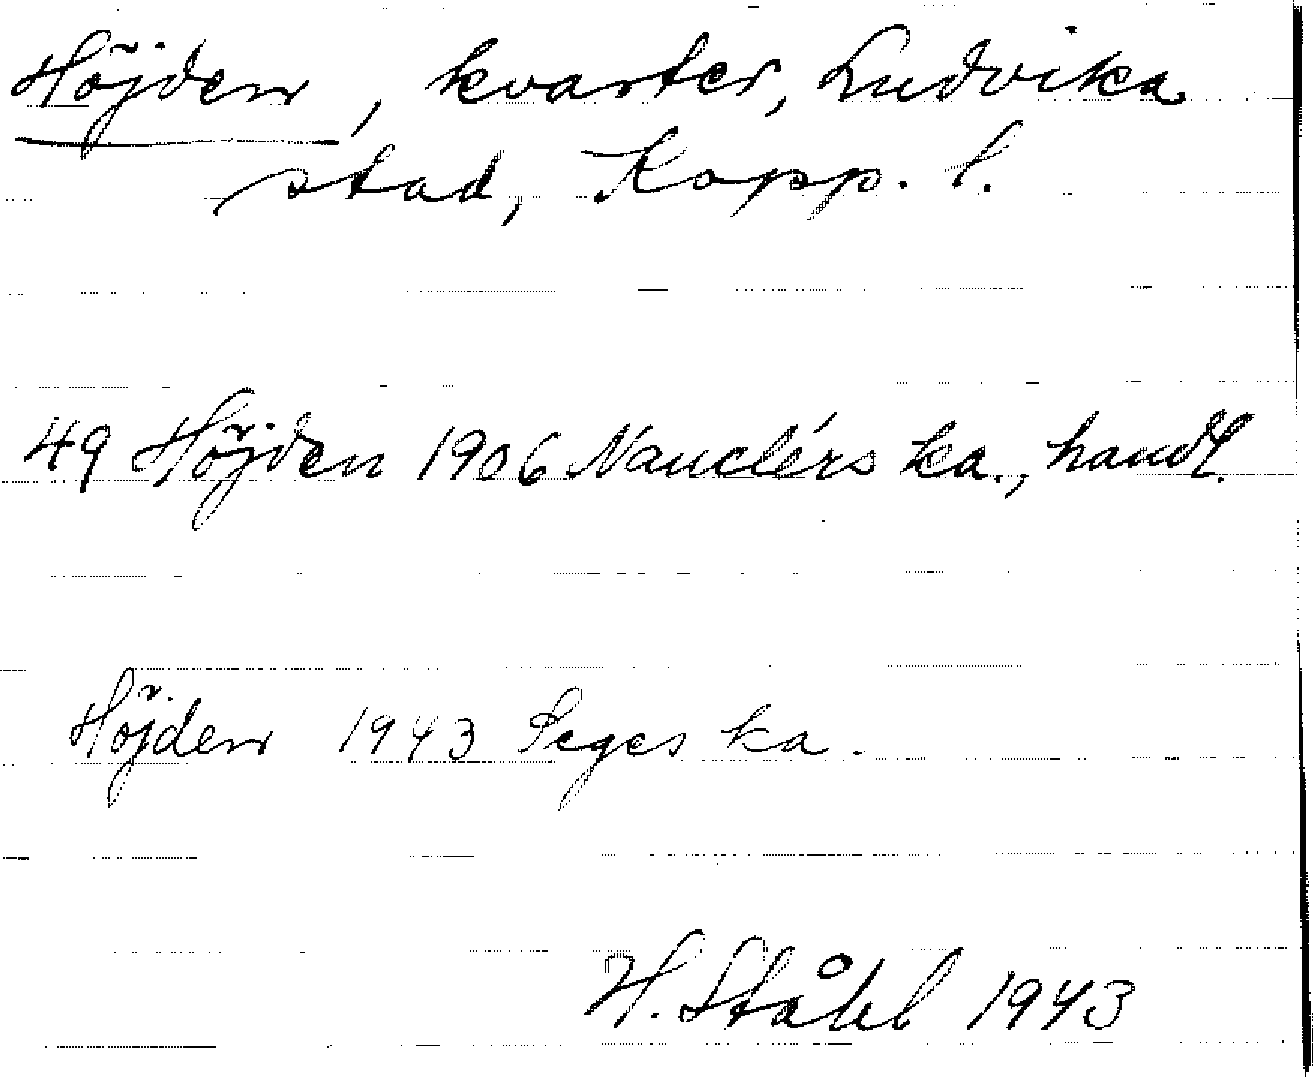 Höjden, kvarter, Ludvika
stad, Kopp. l.
49 Höjden 1906 Nauclérs ka., handl.
Höjden 1943 Seges ka.
H. Ståhl 1943